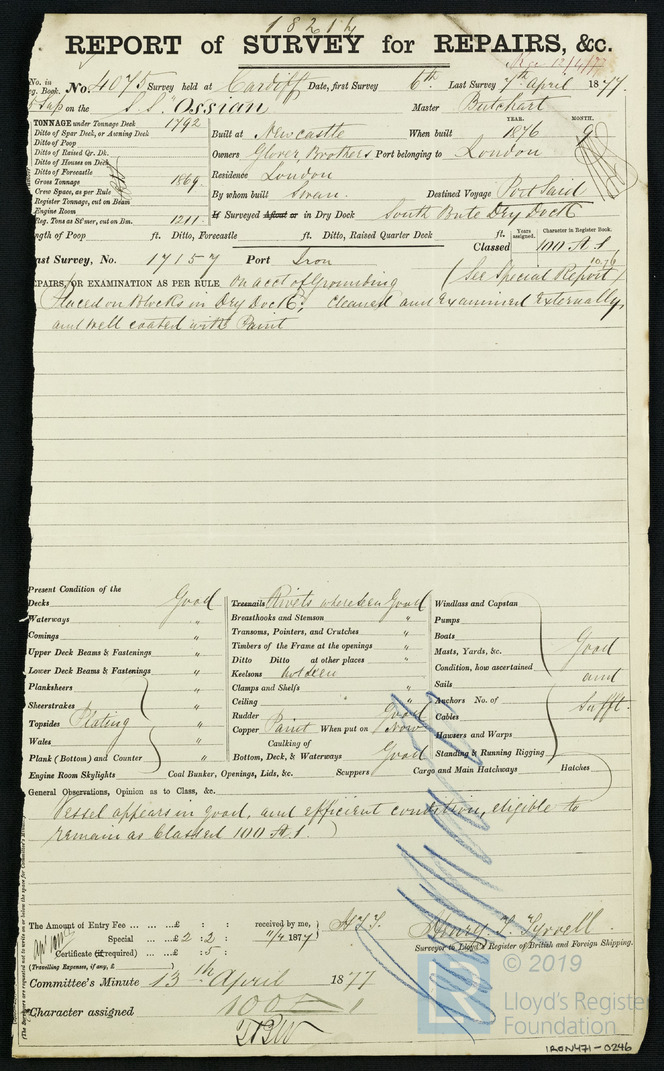 18214
REPORT of SURVEY for REPAIRS, &c.
Rec 12/4/77
No. in Reg. Book. No. 4075 Survey held at Cardiff Date, first Survey 6th Last Survey 7th April 1877.
on the S.S. "Ossian Master Butchart
TONNAGE under Tonnage Deck 1792
Ditto of Spar Deck, or Awning Deck
Ditto of Poop
Ditto of Raised Qr. Dk.
Ditto of Houses on Deck
Ditto of Forecastle
Gross Tonnage 1869.
Crew Space, as per Rule
Register Tonnage, cut on Beam
Engine Room
Reg. Tons as St'mer, cut on Bm. 1211
YEAR. MONTH.
Built at Newcastle When built 1876 9
Owners Glover Brothers Port belonging to London
Residence London
By whom built Swan. Destined Voyage Port Said
If Surveyed Afloat or in Dry Dock South Bute Dry Dock
ngth of Poop ft. Ditto, Forecastle ft. Ditto, Raised Quarter Deck ft.
Years assigned. Character in Register Book.
Classed 100 A.1
10.76
ast Survey, No. 17157 Port Iron
(See Special Report)
EPAIRS, OR EXAMINATION AS PER RULE, on acct of Grounding
Placed on Blocks in Dry Dock; Cleaned and Examined Externally,
and well coated with Paint
Present Condition of the
Decks Good
Waterways "
Comings "
Upper Deck Beams & Fastenings "
Lower Deck Beams & Fastenings "
Planksheers "
Sheerstrakes "
Topsides Plating "
Wales "
Plank (Bottom) and Counter "
Treenails Rivets where seen Good
Breasthooks and Stemson "
Transoms, Pointers, and Crutches "
Timbers of the Frame at the openings "
Ditto Ditto at other places "
Keelsons not seen
Clamps and Shelfs "
Ceiling "
Rudder Good
Copper Paint When put on Now
Caulking of
Bottom, Deck, & Waterways Good
Windlass and Capstan
Pumps
Boats
Masts, Yards, &c.
Condition, how ascertained
Sails
Anchors No. of
Cables
Hawsers and Warps
Standing & Running Rigging
Good
and
Sufft.
Engine Room Skylights Coal Bunker, Openings, Lids, &c. Scuppers Cargo and Main Hatchways Hatches
General Observations, Opinion as to Class, &c.
Vessel appears in good, and efficient condition, eligible to
remain as Classed 100 A.1.
The Amount of Entry Fee ... ... £ : : received by me,
Special ... ... £2 : 2 : 11/4 1877
Certificate (if required) ... £ : 5 :
(Travelling Expenses, if any, £ )
H.L.T.
Henry L. Tyrrell
Surveyor to Lloyd's Register of British and Foreign Shipping.
Committee's Minute 13th April 1877
Character assigned 100 A 1
(The Surveyors are requested not to write on or below the space for Committee's Minute.)
© 2019
Lloyd's Register
Foundation.
IRON471-0246